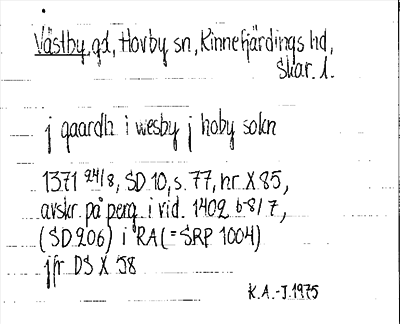 Västby, gd, Hovby sn, Kinnefjärdings hd,
Skar. l.
j gaardh i wesby j hoby sokn
1371 24/8, SD 10, s. 77, nr X 85,
avskr. på perg. i vid. 1402 6-8/7,
(SD 206) i RA (= SRP 1004)
jfr DS X 58
K.A.-J. 1975